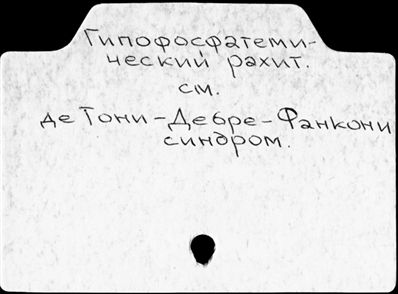 Гипофосфатеми-
ческий рахит.
см.
де Тони-Дебре-Фанкони
синдром.